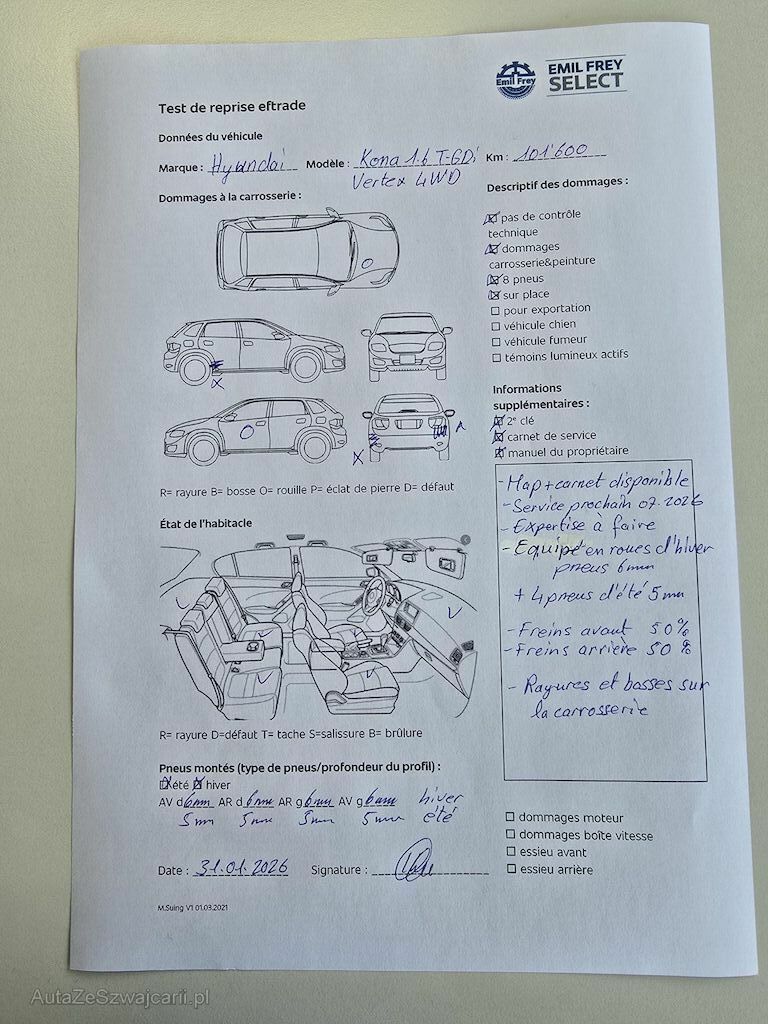 Emil Frey
EMIL FREY
SELECT
Test de reprise eftrade
Données du véhicule
Marque : Hyundai Modèle : Kona 1.6 T-GDi Km : 101'600
Vertex 4WD
Dommages à la carrosserie :
Descriptif des dommages :
pas de contrôle
technique
dommages
carrosserie&peinture
8 pneus
sur place
pour exportation
véhicule chien
véhicule fumeur
témoins lumineux actifs
Informations
supplémentaires :
2e clé
carnet de service
manuel du propriétaire
R= rayure B= bosse O= rouille P= éclat de pierre D= défaut
État de l'habitacle
- Map+carnet disponible
- Service prochain 07.2026
- Expertise à faire
- Equipé en roues d'hiver
pneus 6mm
+ 4 pneus d'été 5mm
- Freins avant 50%
- Freins arrière 50%
- Rayures et bosses sur
la carrosserie
R= rayure D=défaut T= tache S=salissure B= brûlure
Pneus montés (type de pneus/profondeur du profil) :
été hiver
AV d 6mm AR d 6mm AR g 6mm AV g 6mm hiver
5mm 5mm 5mm 5mm été
dommages moteur
dommages boîte vitesse
essieu avant
essieu arrière
Date : 31.01.2026 Signature :
M.Suing V1 01.03.2021
AutaZeSzwajcarii.pl